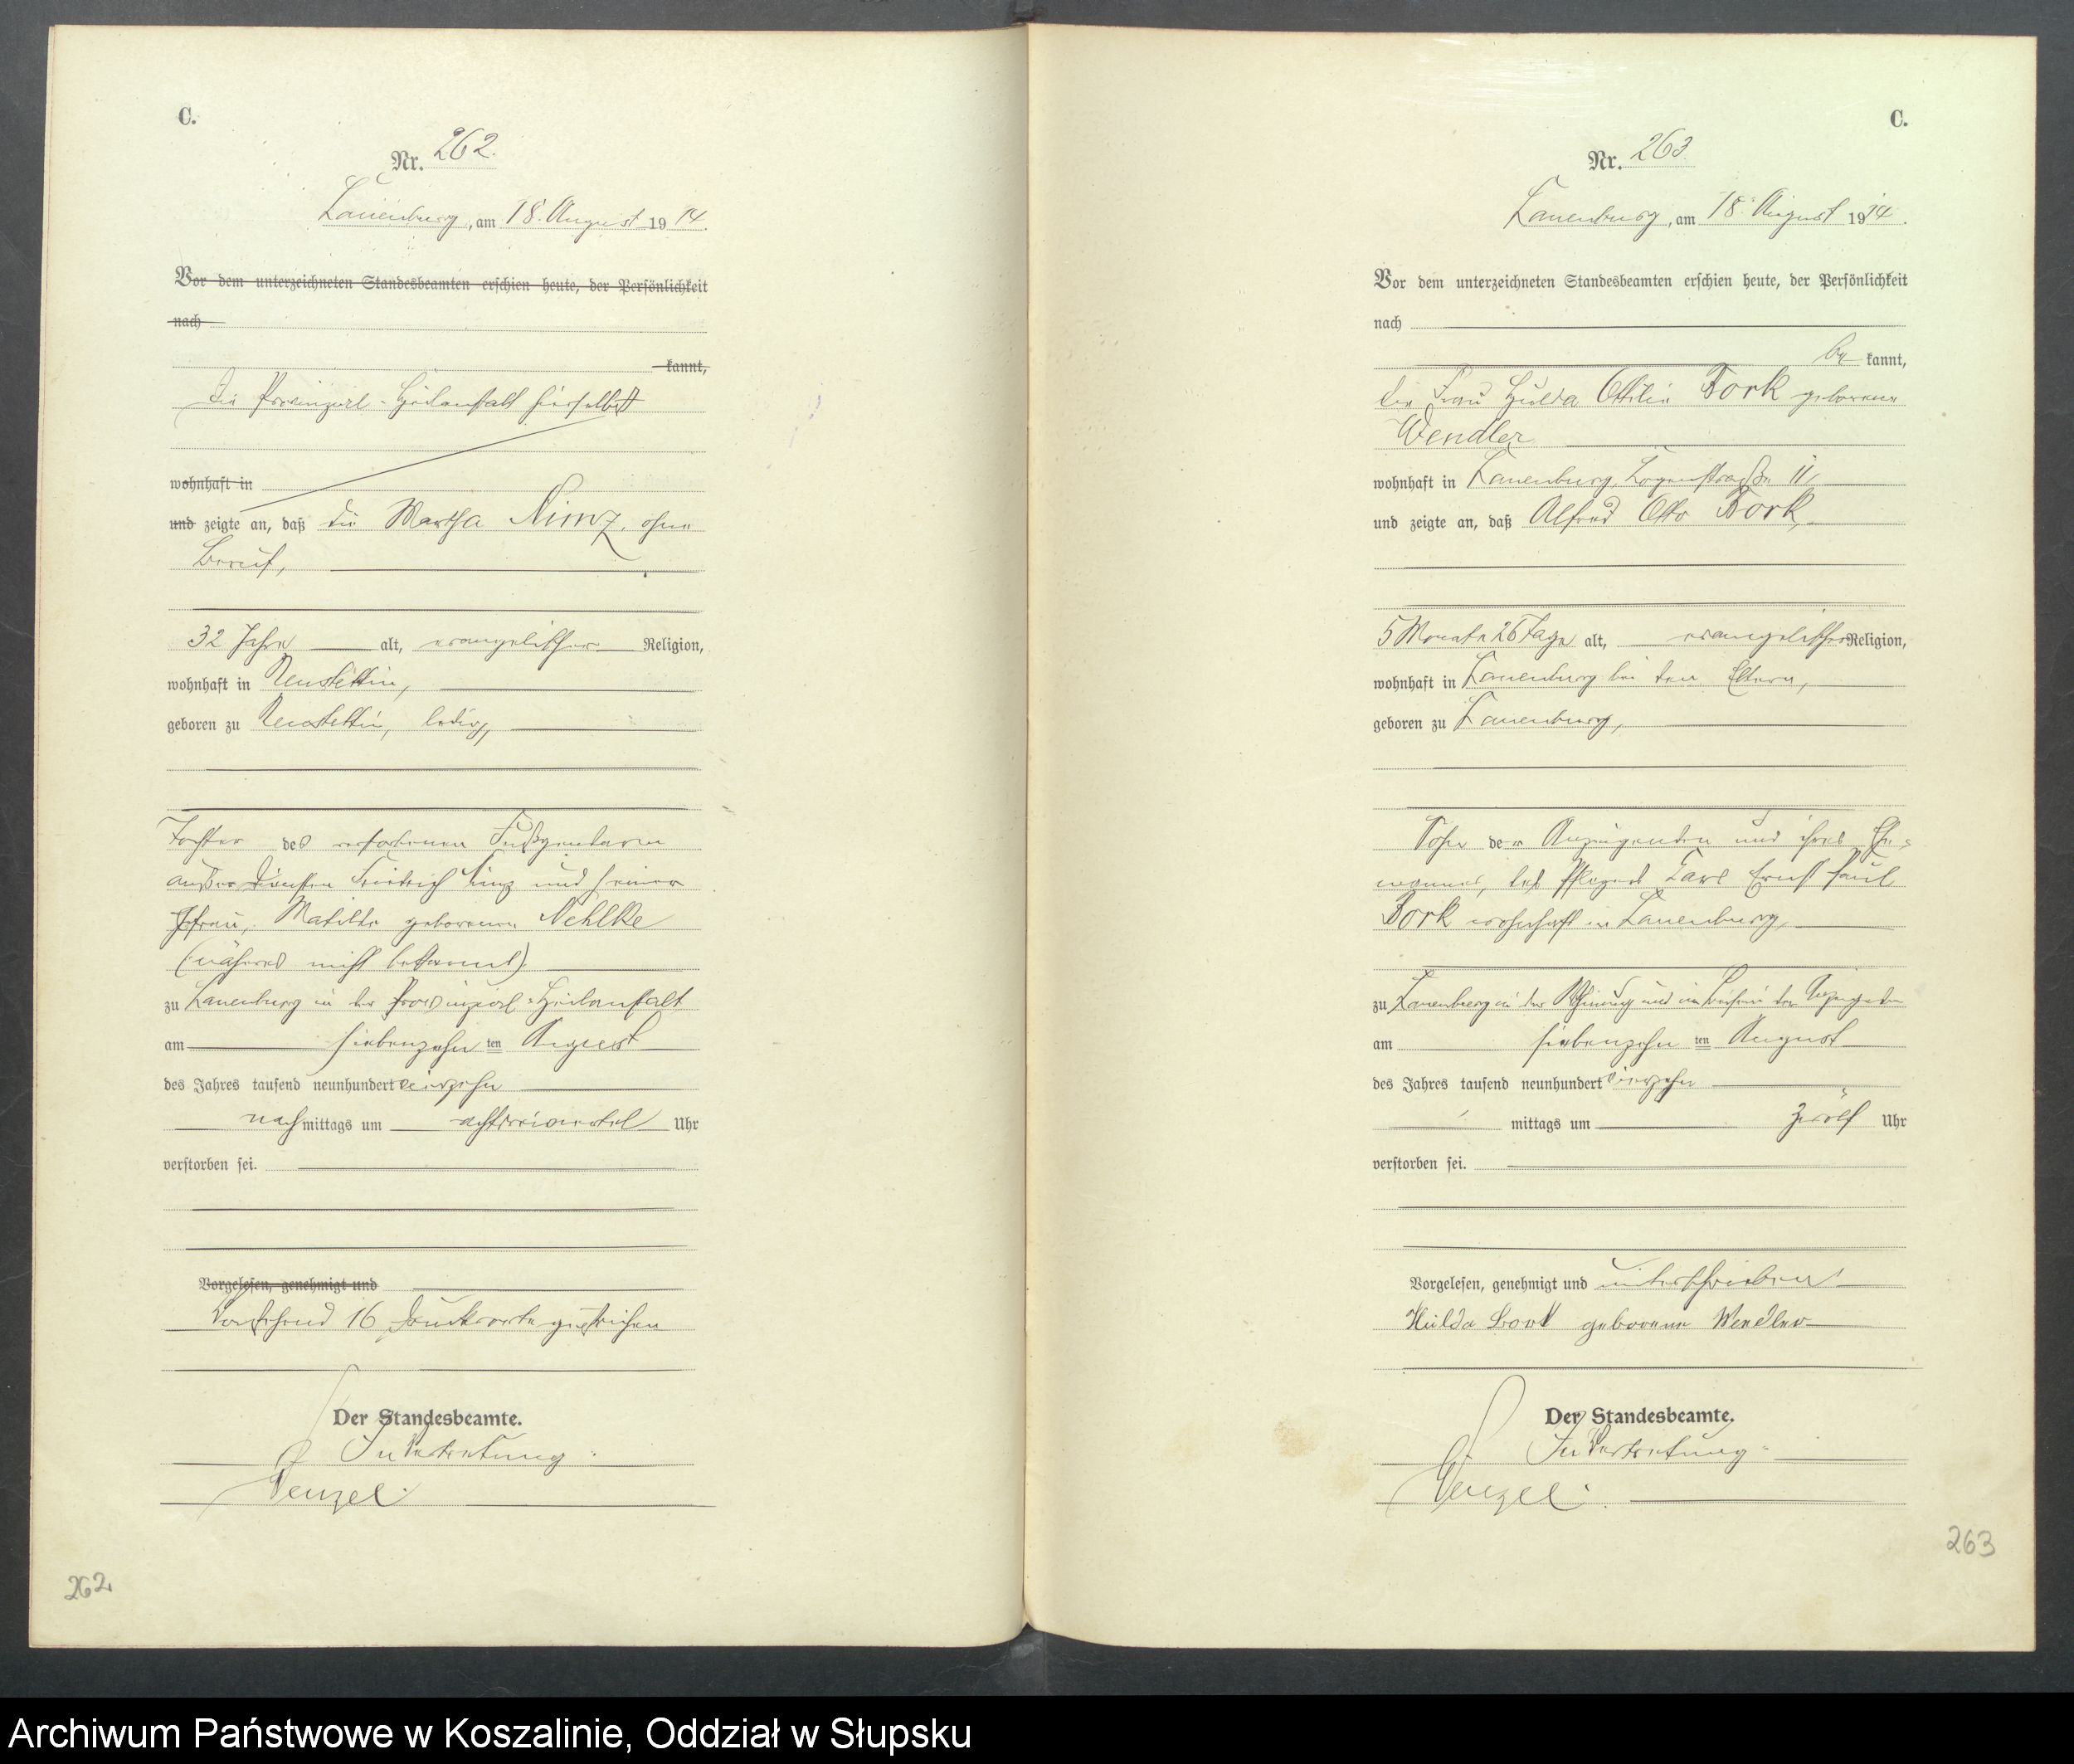 C.
Nr. 262.
Lauenburg, am 18. August 1914.
Vor dem unterzeichneten Standesbeamten erschien heute, der Persönlichkeit
nach
kannt,
Die Provinzial-Heilanstalt hierselbst
wohnhaft in
und zeigte an, daß die Martha Nimz, ohne
Beruf,
32 Jahre alt, evangelischer Religion,
wohnhaft in Neustettin,
geboren zu Neustettin, ledig,
Tochter des verstorbenen Fußgendarm
außer Diensten Friedrich Nimz und seiner
Ehefrau, Matilde geborenen Nehlke
(näheres nicht bekannt)
zu Lauenburg in der Provinzial-Heilanstalt
am siebenzehnten August
des Jahres tausend neunhundert vierzehn
nachmittags um achtdreiviertel Uhr
verstorben sei.
Vorgelesen, genehmigt und
Vorstehend 16 Druckworte gestrichen
Der Standesbeamte.
In Vertretung:
Wenzel.
262
C.
Nr. 263
Lauenburg, am 18. August 1914.
Vor dem unterzeichneten Standesbeamten erschien heute, der Persönlichkeit
nach
be kannt,
die Frau Hulda Ottilie Bork geborene
Wendler
wohnhaft in Lauenburg, Logenstraße 11,
und zeigte an, daß Alfred Otto Bork,
5 Monate 26 Tage alt, evangelischer Religion,
wohnhaft in Lauenburg bei den Eltern,
geboren zu Lauenburg,
Sohn der Anzeigenden und ihres Ehe-
mannes, des Pflegers Carl Ernst Paul
Bork wohnhaft in Lauenburg,
zu Lauenburg in der Wohnung und im Beisein der Anzeigenden
am siebenzehnten August
des Jahres tausend neunhundert vierzehn
mittags um zwölf Uhr
verstorben sei.
Vorgelesen, genehmigt und unterschrieben
Hulda Bork geborene Wendler
Der Standesbeamte.
In Vertretung:
Wenzel.
263
Archiwum Państwowe w Koszalinie, Oddział w Słupsku